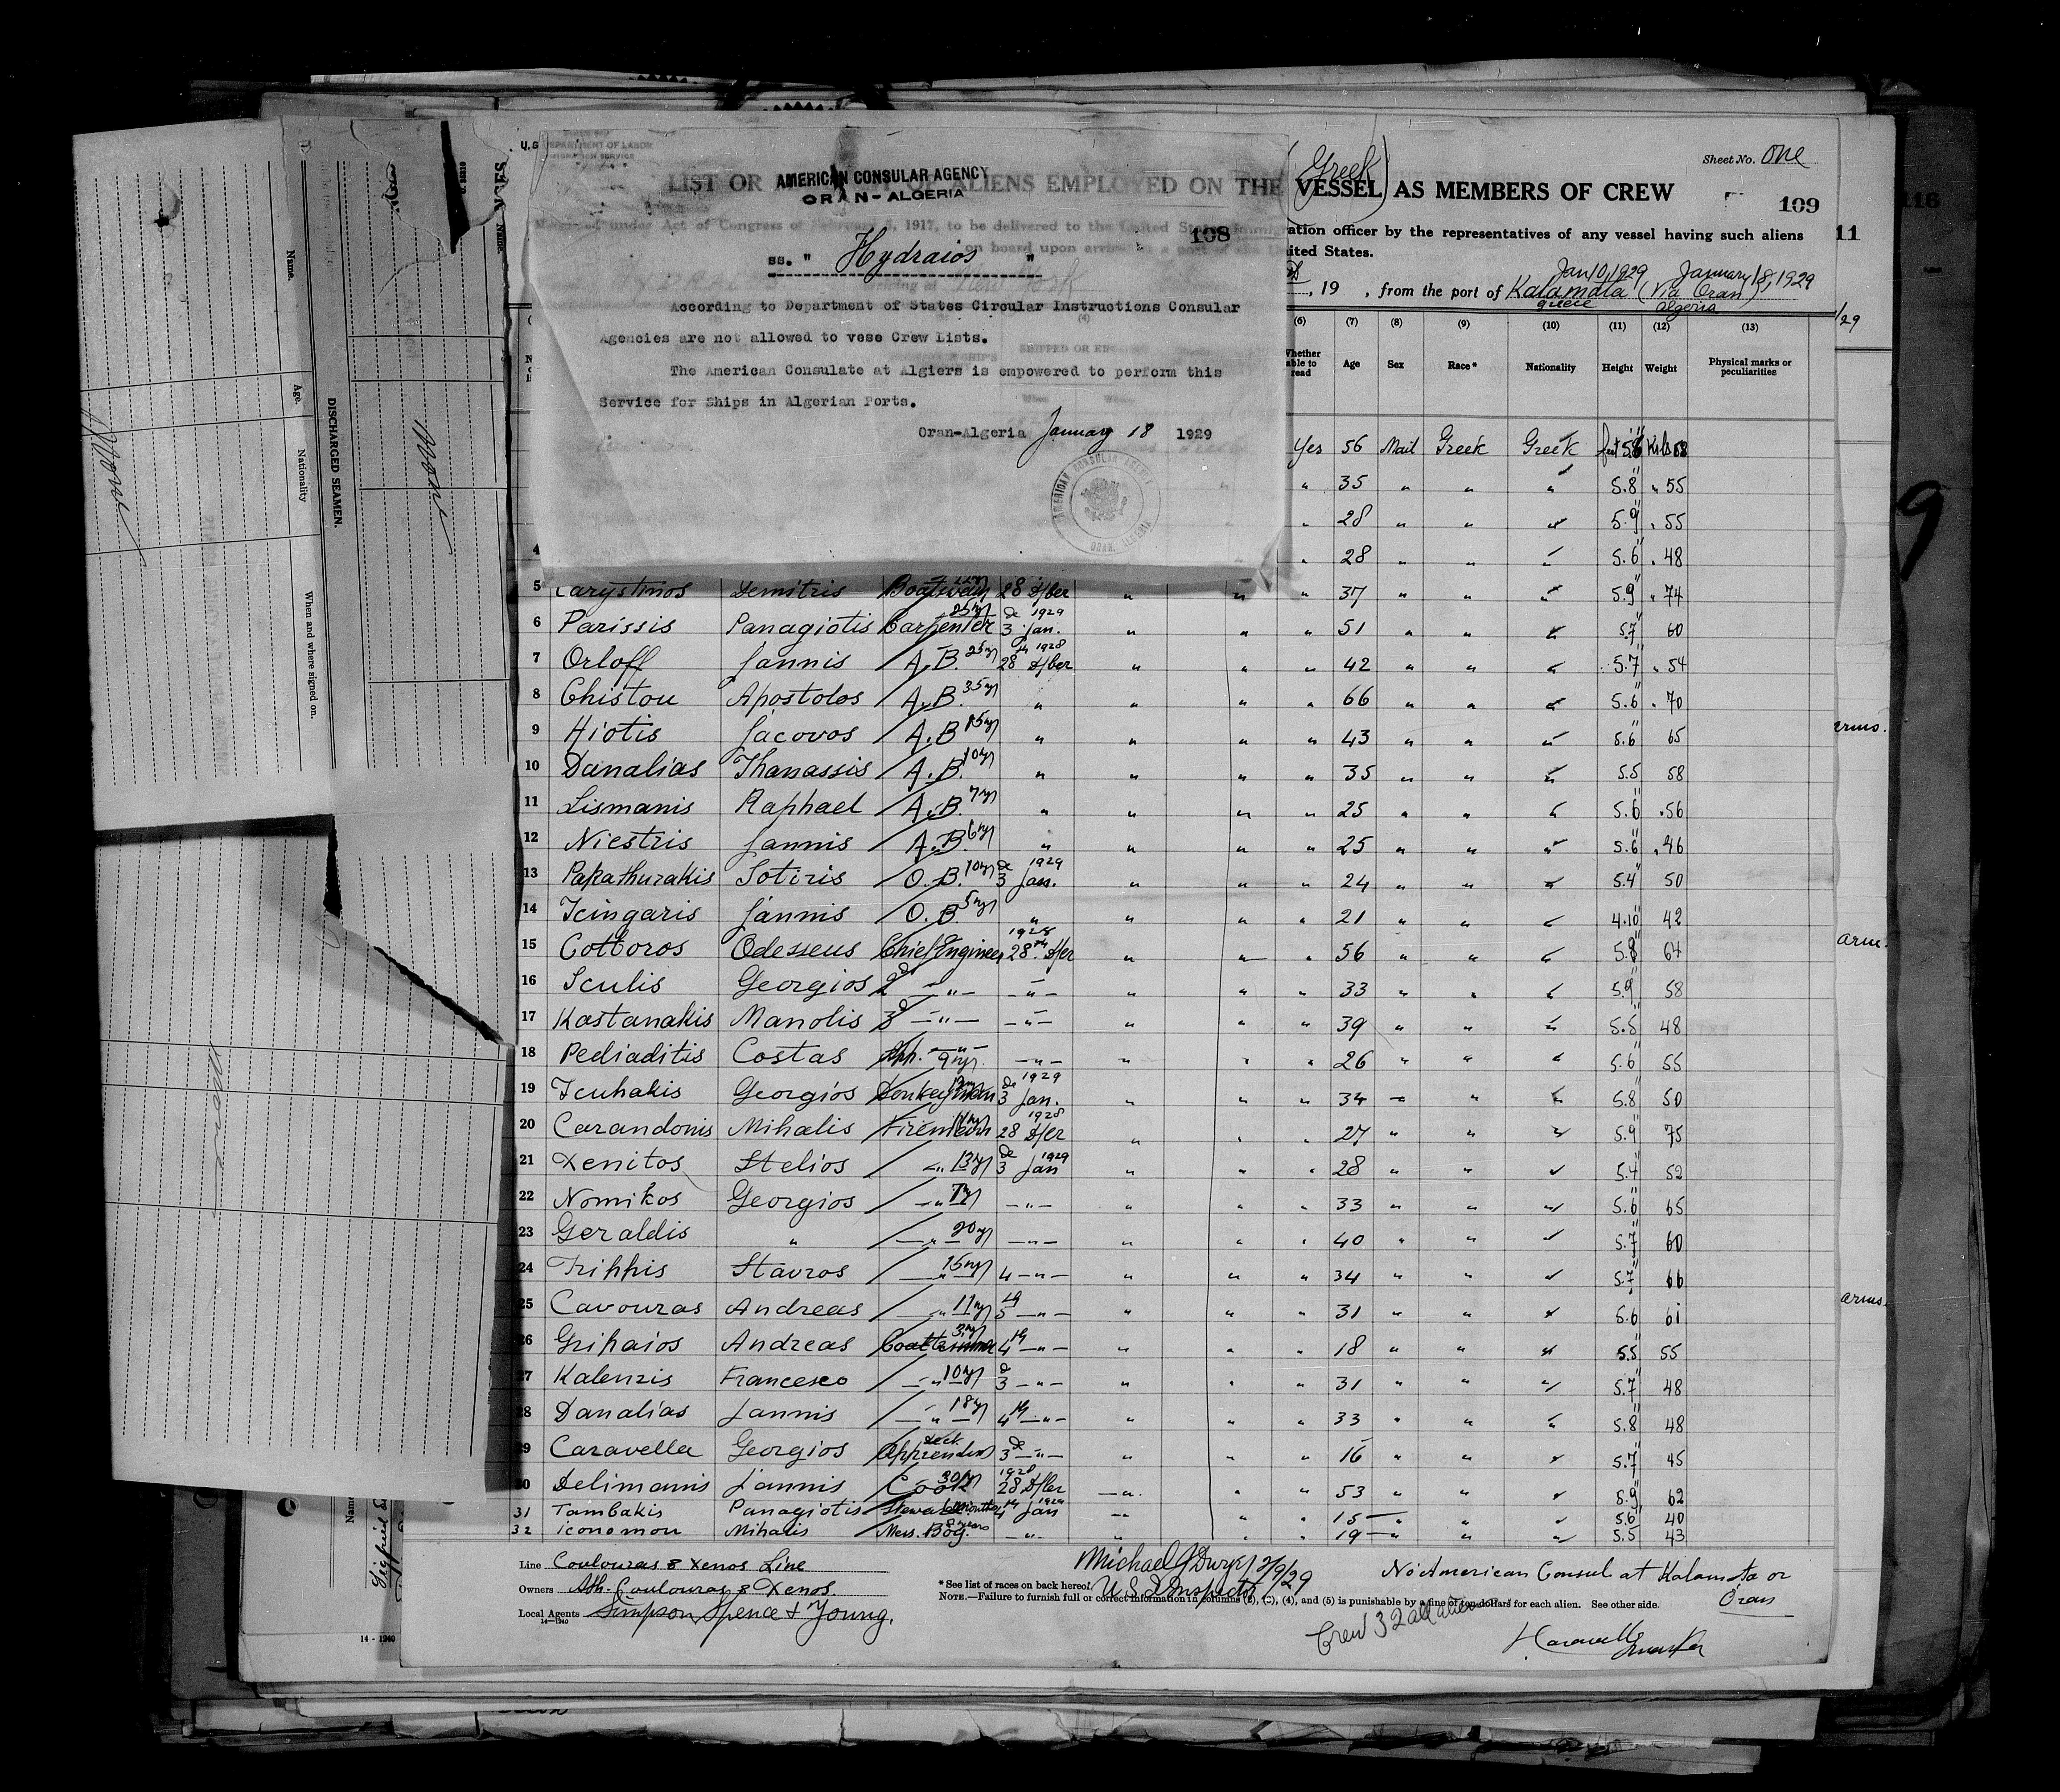 Sheet No. One
(Greek)
LIST OR MANIFEST OF ALIENS EMPLOYED ON THE VESSEL AS MEMBERS OF CREW
109
AMERICAN CONSULAR AGENCY
ORAN-ALGERIA
108
ss. " Hydraios "
According to Department of States Circular Instructions Consular
Agencies are not allowed to vese Crew Lists.
The American Consulate at Algiers is empowered to perform this
Service for Ships in Algerian Ports.
Oran-Algeria January 18 1929
AMERICAN CONSULAR AGENCY
ORAN, ALGERIA
ation officer by the representatives of any vessel having such aliens
ited States.
Jan 10, 1929 January 18, 1929
, 19 , from the port of Kalamata (Via Oran)
greece Algeria
(6) (7) (8) (9) (10) (11) (12) (13)
Whether able to read Age Sex Race* Nationality Height Weight Physical marks or peculiarities
Yes 56 Mail Greek Greek 5.8" Kils 68
" 35 " " " 5.8" " 55
" 28 " " " 5.9" " 55
4 " 28 " " " 5.6" " 48
5 Carystinos Demitris Boatswain 28 D/ber " " " 37 " " " 5.9" " 74
6 Parissis Panagiotis Carpenter 3 Jan. 1929 " " " 51 " " " 5.7" 60
7 Orloff Jannis A.B. 25 y 28 D/ber 1928 " " " 42 " " " 5.7" " 54
8 Christou Apostolos A.B. 35 y " " " " 66 " " " 5.6" " 70
9 Hiotis Jacovos A.B. 15 y " " " " 43 " " " 5.6" 65
10 Danalias Thanassis A.B. 10 y " " " " 35 " " " 5.5 58
11 Lismanis Raphael A.B. 7 y " " " " 25 " " " 5.6" " 56
12 Niestris Jannis A.B. 6 y " " " " 25 " " " 5.6" " 46
13 Papathurakis Sotiris O.B. 10 y 3 Jan. 1929 " " " 24 " " " 5.4" 50
14 Tcingaris Jannis O.B. 5 y " " " " 21 " " " 4.10" 42
15 Cottoros Odesseus Chief Engineer 28th D/er 1928 " " " 56 " " " 5.8" 64
16 Sculis Georgios 2d " " " " " 33 " " " 5.9" 58
17 Kastanakis Manolis 3d " " " " " 39 " " " 5.5" 48
18 Pediaditis Costas App. " 9 y. " " " " 26 " " " 5.6" 55
19 Tcuhakis Georgios Donkeyman 3 Jan. 1929 " " " 34 " " " 5.8" 50
20 Carandonis Mihalis Fireman 28 D/er 1928 " " " 27 " " " 5.9" 75
21 Xenitos Stelios " 13 y 3 Jan 1929 " " " 28 " " " 5.4" 52
22 Nomikos Georgios " 7 y " " " " 33 " " " 5.6" 65
23 Geraldis " " 20 y " " " " 40 " " " 5.7" 60
24 Trippis Stavros " 15 y 4 " " " " 34 " " " 5.7" 66
25 Cavouras Andreas " 11 y 5 " " " " 31 " " " 5.6 61
26 Gripaios Andreas Coaltrimmer 3 y 4th " " " " 18 " " " 5.5" 55
27 Kalenzis Francesco " 10 y 3 " " " " 31 " " " 5.7" 48
28 Danalias Jannis " 18 y 4th " " " " 33 " " " 5.8" 48
29 Caravella Georgios deck Apprendis 3 " " " " 16 " " " 5.7" 45
30 Delimanis Jannis Cook 30 y 28 D/ber 1928 " " " 53 " " " 5.9" 62
31 Tambakis Panagiotis Steward months 4th Jan 1929 " " " 15 " " " 5.6" 40
32 iconomou Mihalis Mess. Boy. years " " " " 19 " " " 5.5 43
Line Coulouras & Xenos Line
Owners Ath. Coulouras & Xenos.
Local Agents Simpson, Spence & Young.
14—1240
Michael J Dwyer 2/9/29
U.S. Inspector
* See list of races on back hereof.
NOTE.—Failure to furnish full or correct information in columns (2), (3), (4), and (5) is punishable by a fine of ten dollars for each alien. See other side.
No American Consul at Kalamata or
Oran
Crew 32 all aliens
Master
11
/29
arms.
arm.
arms.
116
9
DISCHARGED SEAMEN.
Name.
Age.
Nationality
When and where signed on.
None
14 - 1240